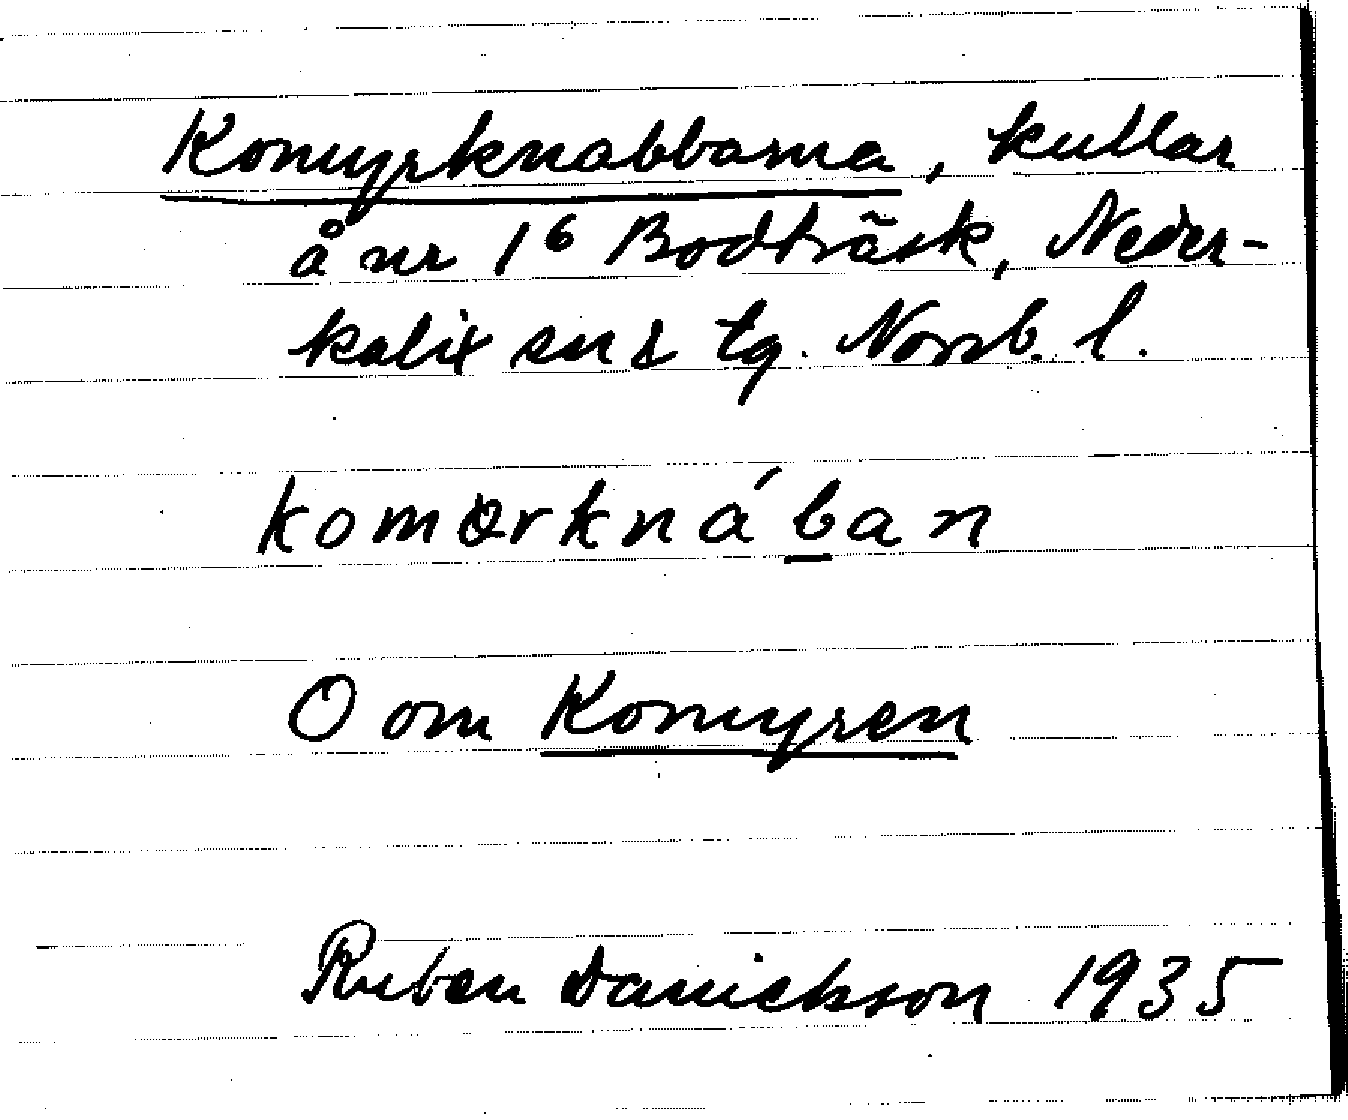 Komyrknabbarna, kullar
å nr 1⁶ Bodträsk, Neder-
kalix sn o tg. Norrb. l.
komørknában
O om Komyren
Ruben Danielsson 1935